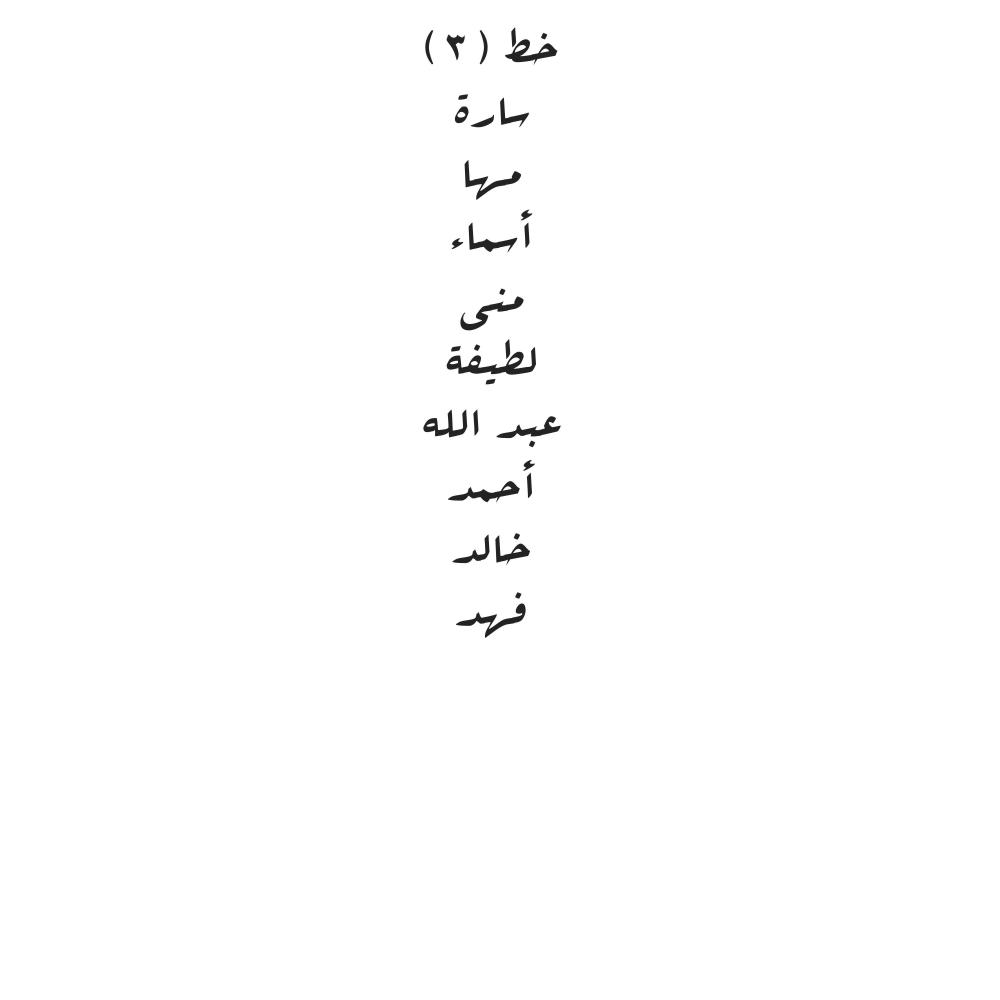 خط ( ٣ )
سارة
مها
أسماء
منى
لطيفة
عبد الله
أحمد
خالد
فهد